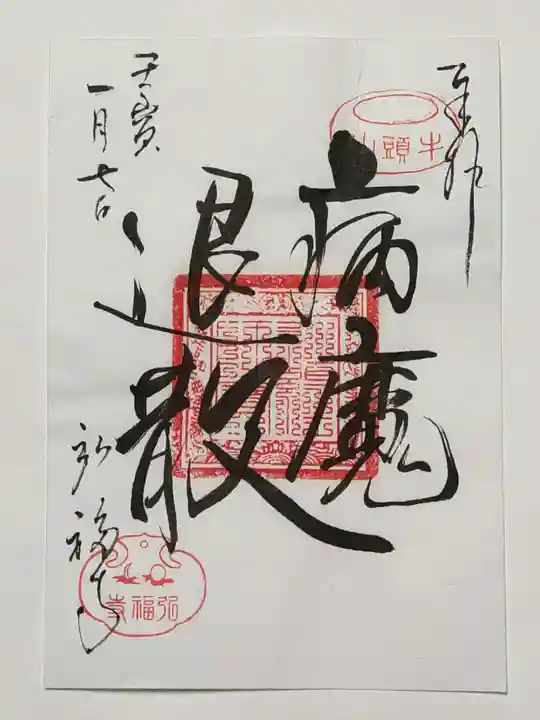 奉拝
牛頭山
病魔
退散
壬寅
一月七日
弘福寺
弘福寺